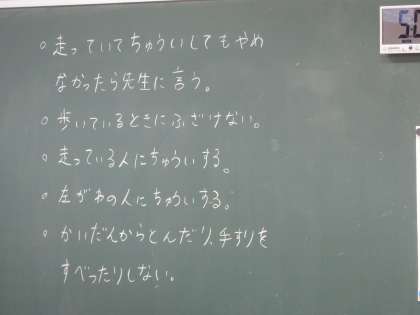 ○走っていてちゅういしてもやめ
なかったら先生に言う。
○歩いているときにふざけない。
○走っている人にちゅういする。
○左がわの人にちゅういする。
○かいだんからとんだり、手すりを
すべったりしない。